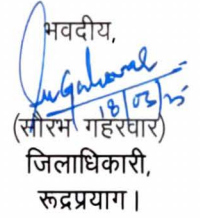 भवदीय,
18/03/25
(सौरभ गहरवार)
जिलाधिकारी,
रूद्रप्रयाग।